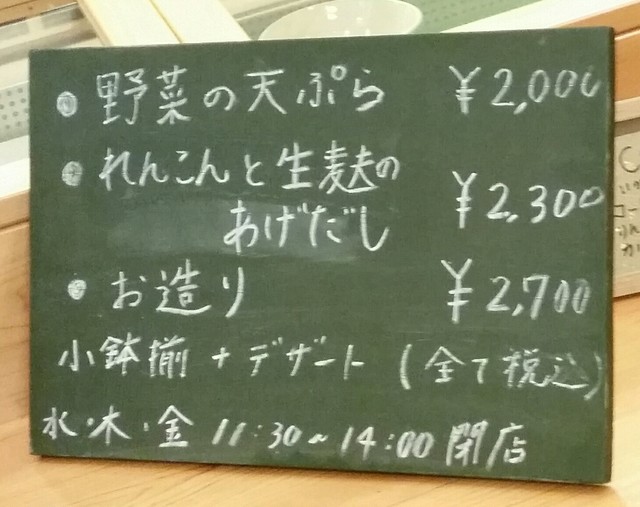 ● 野菜の天ぷら ¥2,000
● れんこんと生麩の
あげだし ¥2,300
● お造り ¥2,700
小鉢揃 + デザート (全て税込)
水・木・金 11:30~14:00 閉店